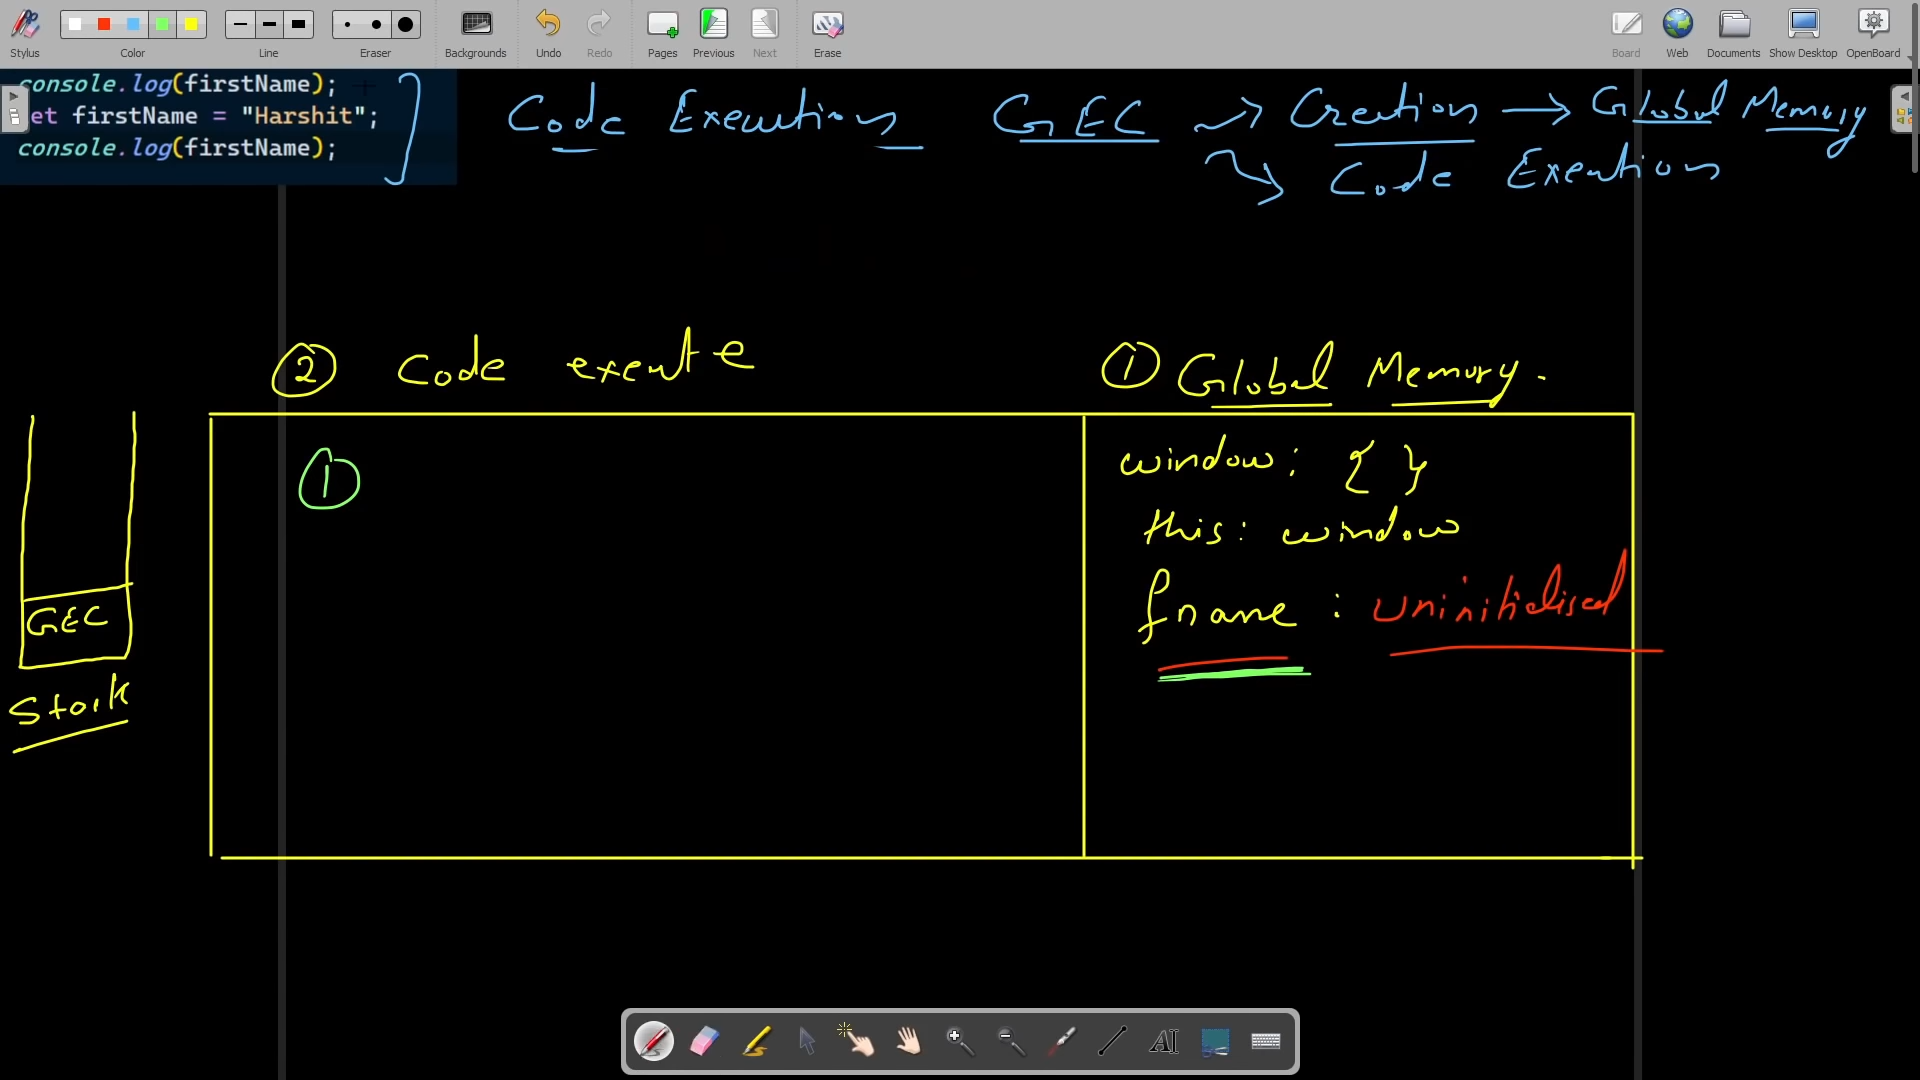 Stylus
Color
Line
Eraser
Backgrounds
Undo
Redo
Pages
Previous
Next
Erase
Board
Web
Documents
Show Desktop
OpenBoard
console.log(firstName);
et firstName = "Harshit";
console.log(firstName);
Code Execution GEC Creation → Global Memory
Code Execution
② Code execute
① Global Memory.
①
window: { }
this: window
fname : uninitialised
GEC
Stack
AI